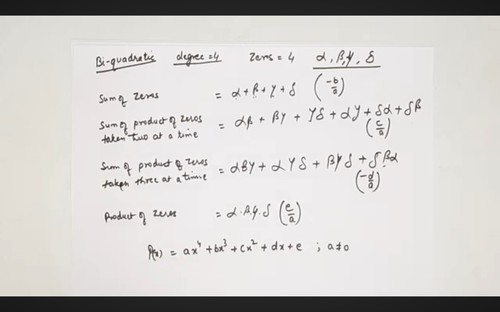 Bi-quadratic degree=4 Zeros=4 α, β, γ, δ
Sum of Zeros = α+β+γ+δ (-b/a)
Sum of product of zeros taken two at a time = αβ + βγ + γδ + αγ + δα + δβ (c/a)
Sum of product of zeros taken three at a time = αβγ + αγδ + βγδ + δβα (-d/a)
Product of zeros = α.β.γ.δ (e/a)
P(x) = ax⁴ + bx³ + cx² + dx + e ; a≠0